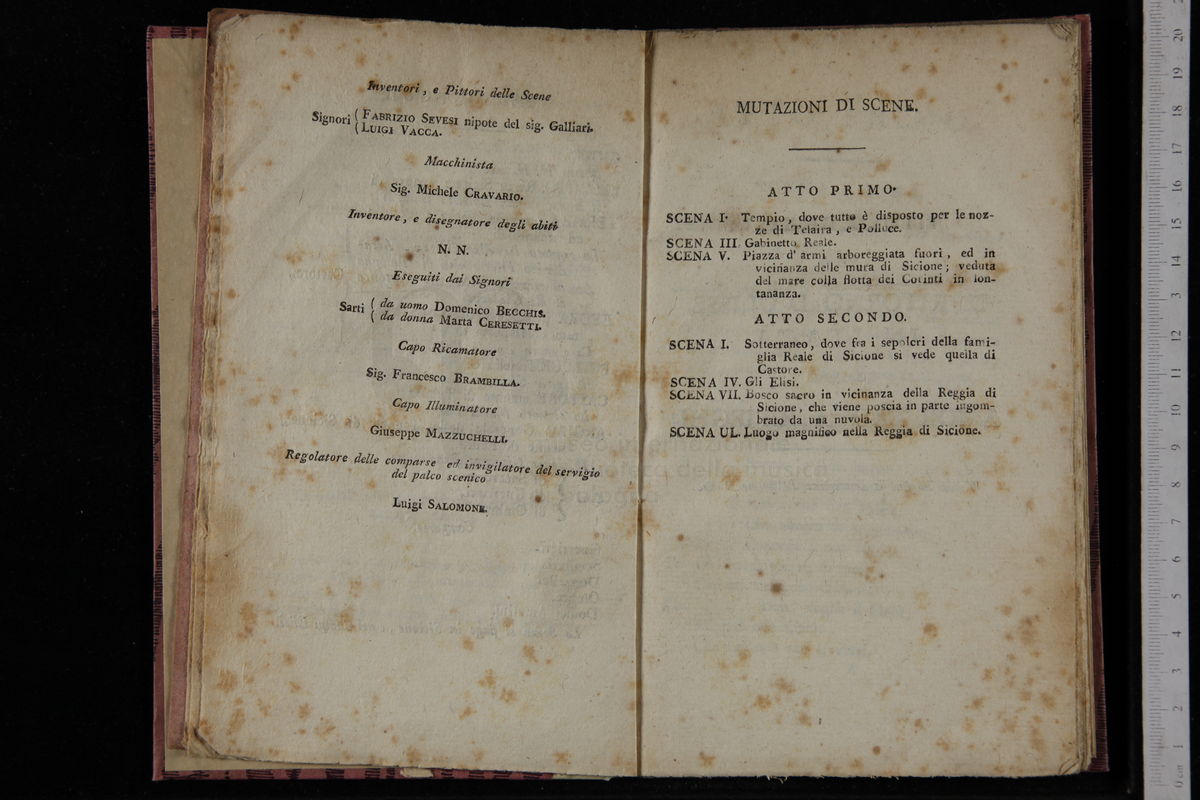 Inventori, e Pittori delle Scene
Signori ( FABRIZIO SEVESI nipote del sig. Galliari.
( LUIGI VACCA.
Macchinista
Sig. Michele CRAVARIO.
Inventore, e disegnatore degli abiti
N. N.
Eseguiti dai Signori
Sarti ( da uomo Domenico BECCHIS.
( da donna Marta CERESETTI.
Capo Ricamatore
Sig. Francesco BRAMBILLA.
Capo Illuminatore
Giuseppe MAZZUCHELLI.
Regolatore delle comparse ed invigilatore del servigio
del palco scenico
Luigi SALOMONE.
MUTAZIONI DI SCENE.
ATTO PRIMO.
SCENA I. Tempio, dove tutto è disposto per le noz-
ze di Telaira, e Polluce.
SCENA III. Gabinetto Reale.
SCENA V. Piazza d' armi arboreggiata fuori, ed in
vicinanza delle mura di Sicione; veduta
del mare colla flotta dei Corinti in lon-
tananza.
ATTO SECONDO.
SCENA I. Sotterraneo, dove fra i sepolcri della fami-
glia Reale di Sicione si vede quella di
Castore.
SCENA IV. Gli Elisi.
SCENA VII. Bosco sacro in vicinanza della Reggia di
Sicione, che viene poscia in parte ingom-
brato da una nuvola.
SCENA UL. Luogo magnifico nella Reggia di Sicione.